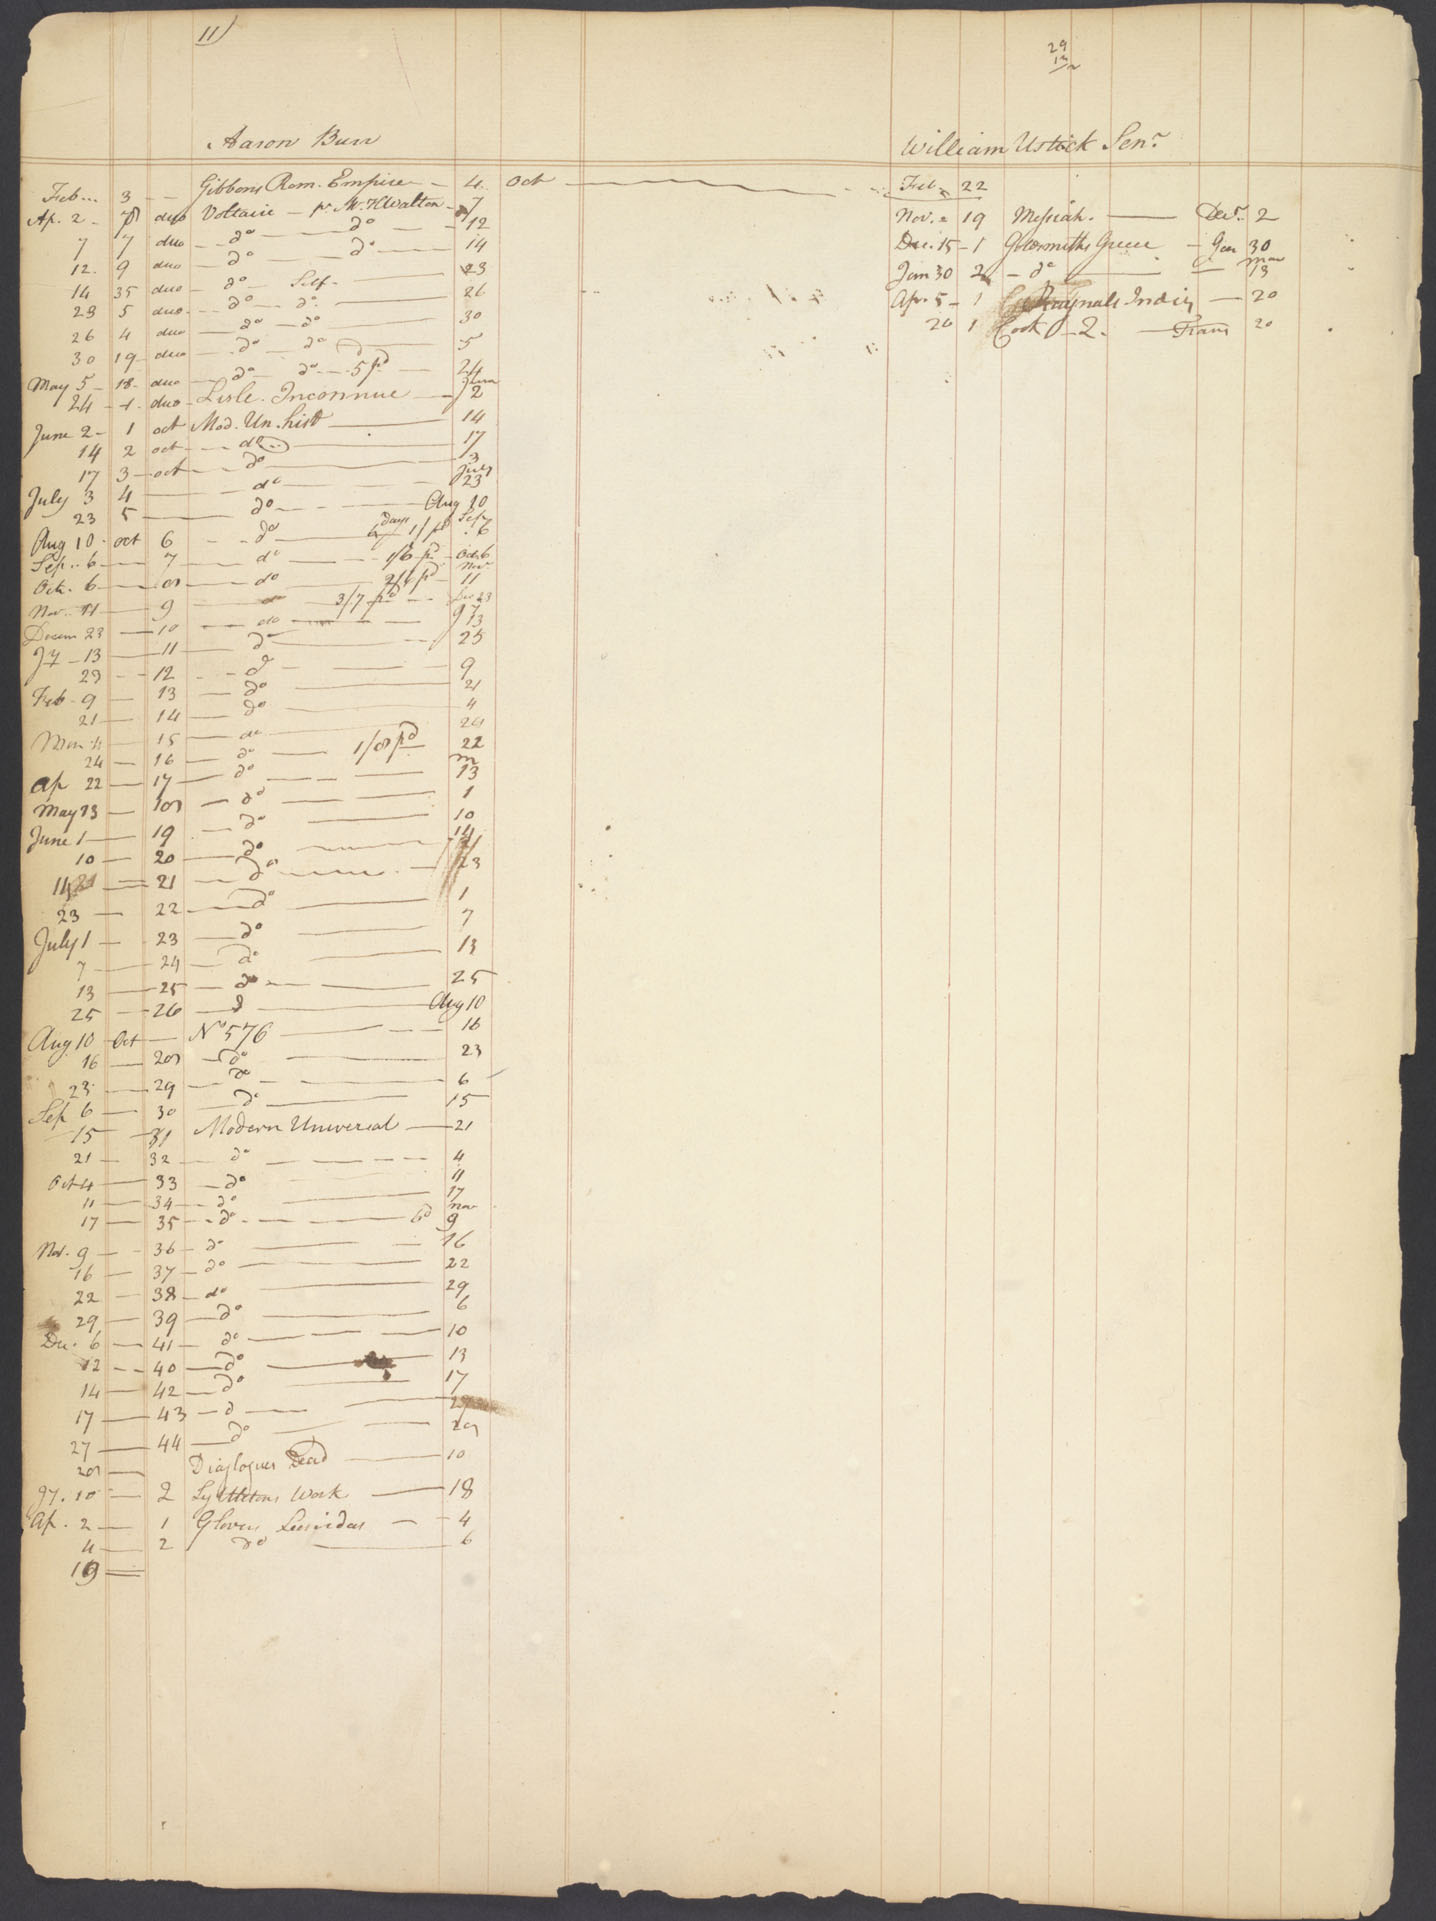 11
29
Aaron Burr
Feb 3 Gibbons Rom. Empire 4 Oct
Ap. 2 8 duo Voltaire pr. Mr. H Walton 7
7 7 duo do do 12
12 9 duo do do 14
14 35 duo do Self 23
23 5 duo do do 26
26 4 duo do do 30
30 19 duo do do 5
May 5 18 duo do do 5 pd 24
24 1 duo Lisle Inconnue June 2
June 2 1 oct Mod. Un. hist 14
14 2 oct do 17
17 3 oct do July 3
July 3 4 do 23
23 5 do Aug 10
Aug 10 oct 6 do 6 days 1/ pd Sep 6
Sep. 6 7 do 1/6 pd Oct 6
Oct. 6 8 do pd Nov 11
Nov. 11 9 do 3/7 pd Dec 23
Decem 23 10 do Jy 13
Jy 13 11 do 25
12 do 9
Feb 9 13 do 21
21 14 do 4
Mar 4 15 do 24
24 16 do 1/8 pd 22
Ap 22 17 do m 13
May 13 18 do 1
June 1 19 do 10
10 20 do 14
14 21 do 23
23 22 do 1
July 1 23 do 7
7 24 do 13
13 25 do 25
25 26 do Aug 10
Aug. 10 Oct No 576 16
16 28 do 23
23 29 do 6
Sep 6 30 do 15
15 31 Modern Universal 21
21 32 do 4
Oct 4 33 do 11
11 34 do 17
17 35 do 6d Nov 9
Nov. 9 36 do 16
16 37 do 22
22 38 do 29
29 39 do 6
Dec. 6 41 do 10
12 40 do 13
14 42 do 17
17 43 do 27
27 44 do 28
28 Diaglogues Dead 10
Jy. 10 2 Lyttletons Work 18
Ap. 2 1 Glovers Leonidas 4
4 2 do 6
19
William Ustick Senr.
Feb 22
Nov. 19 Messiah. Decr. 2
Dec. 15 1 Goldsmiths Greece Jan 30
Jan 30 2 do Mar 13
Ap. 5 1 Raynals Indies 20
20 1 Cook 2. 20